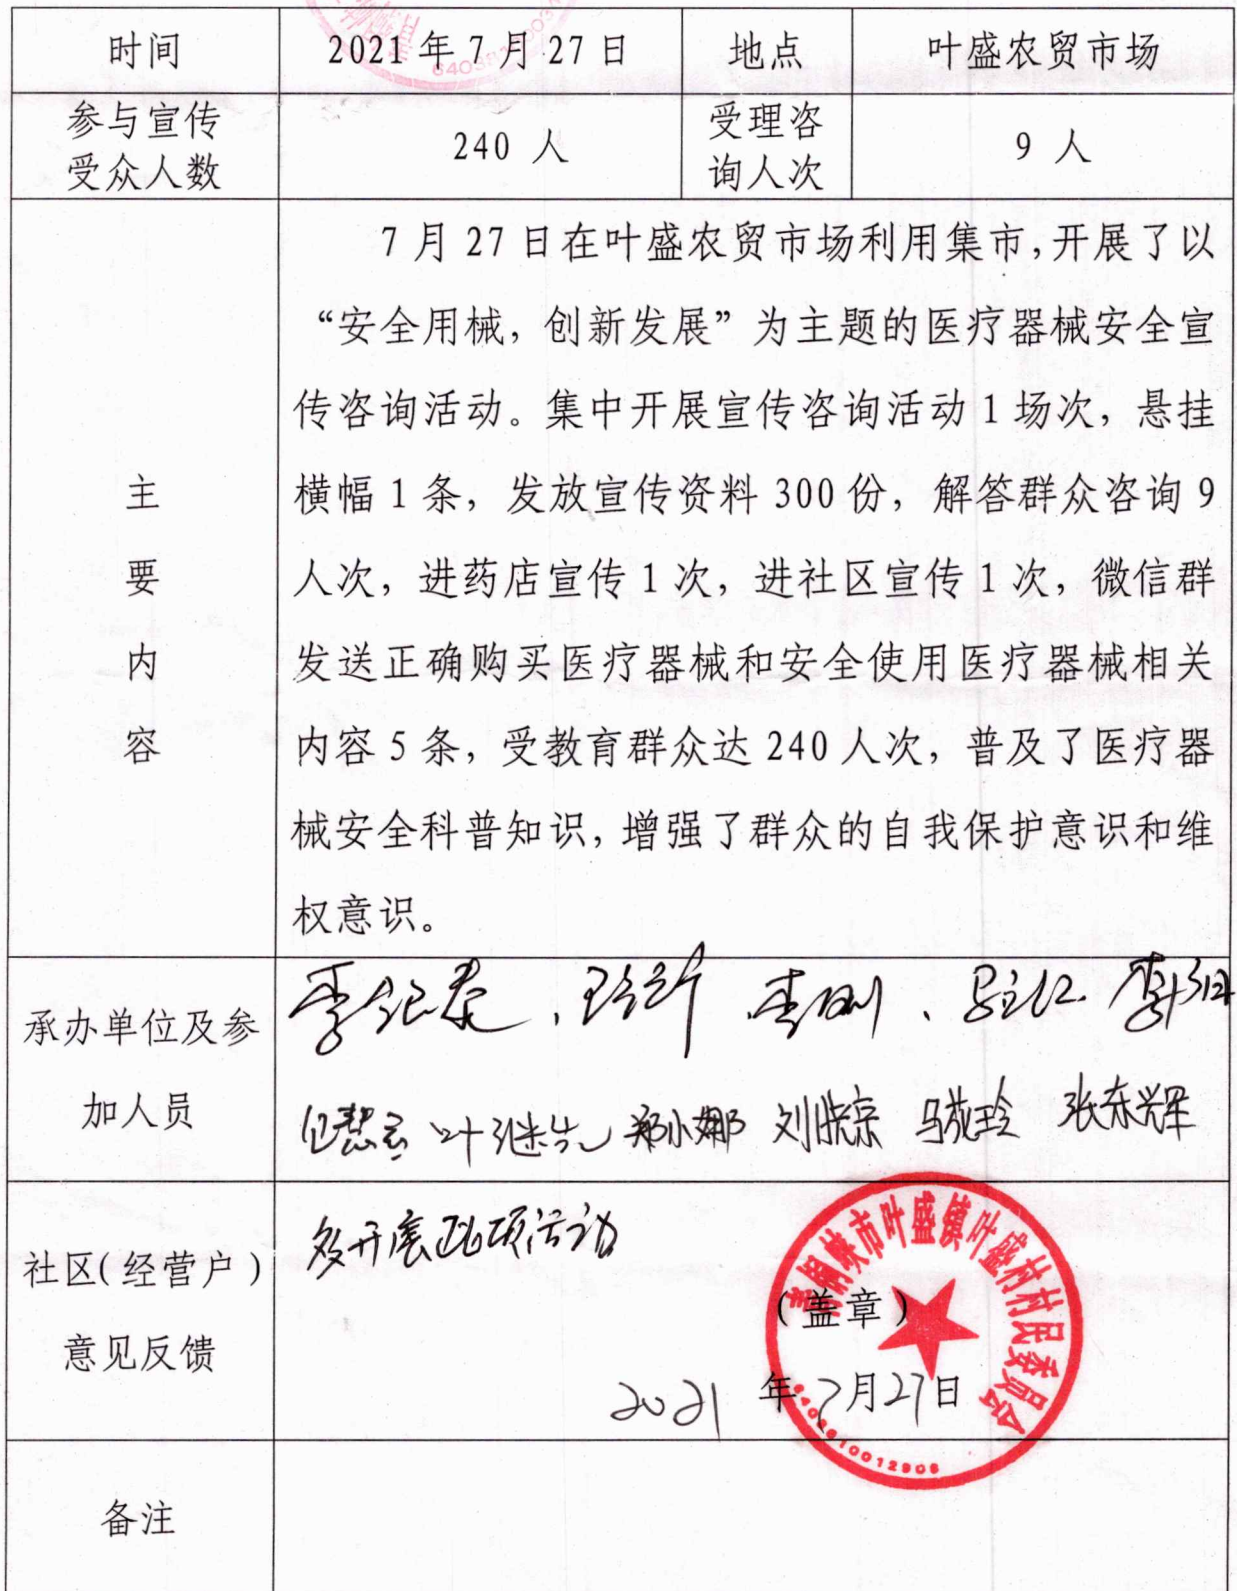 时间 2021年7月27日 地点 叶盛农贸市场
参与宣传 受理咨
240 人 9 人
受众人数 询人次
7月27日在叶盛农贸市场利用集市,开展了以
“安全用械，创新发展”为主题的医疗器械安全宣
传咨询活动。集中开展宣传咨询活动1场次，悬挂
主 横幅1条，发放宣传资料300份，解答群众咨询9
要 人次，进药店宣传1次，进社区宣传1次，微信群
内 发送正确购买医疗器械和安全使用医疗器械相关
容 内容5条，受教育群众达240人次，普及了医疗器
械安全科普知识,增强了群众的自我保护意识和维
权意识。
承办单位及参
加人员
叶继先 郑小娜 刘晓京 张东辉
社区(经营户)
意见反馈
多开展此项活动
青铜峡市叶盛镇叶盛村村民委员会
(盖章)
2021年7月27日
备注